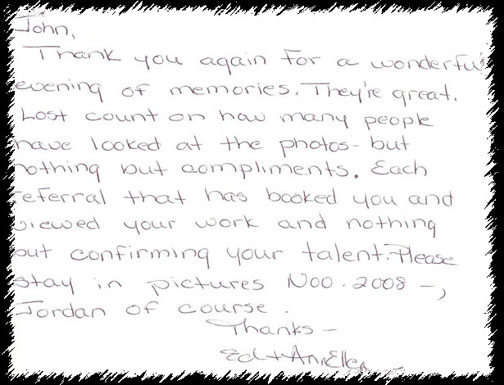 John,
Thank you again for a wonderful
evening of memories. They're great.
Lost count on how many people
have looked at the photos - but
nothing but compliments. Each
referral that has booked you and
viewed your work and nothing
but confirming your talent. Please
stay in pictures Noo. 2008 -,
Jordan of course.
Thanks -
Ed + AnnEllen